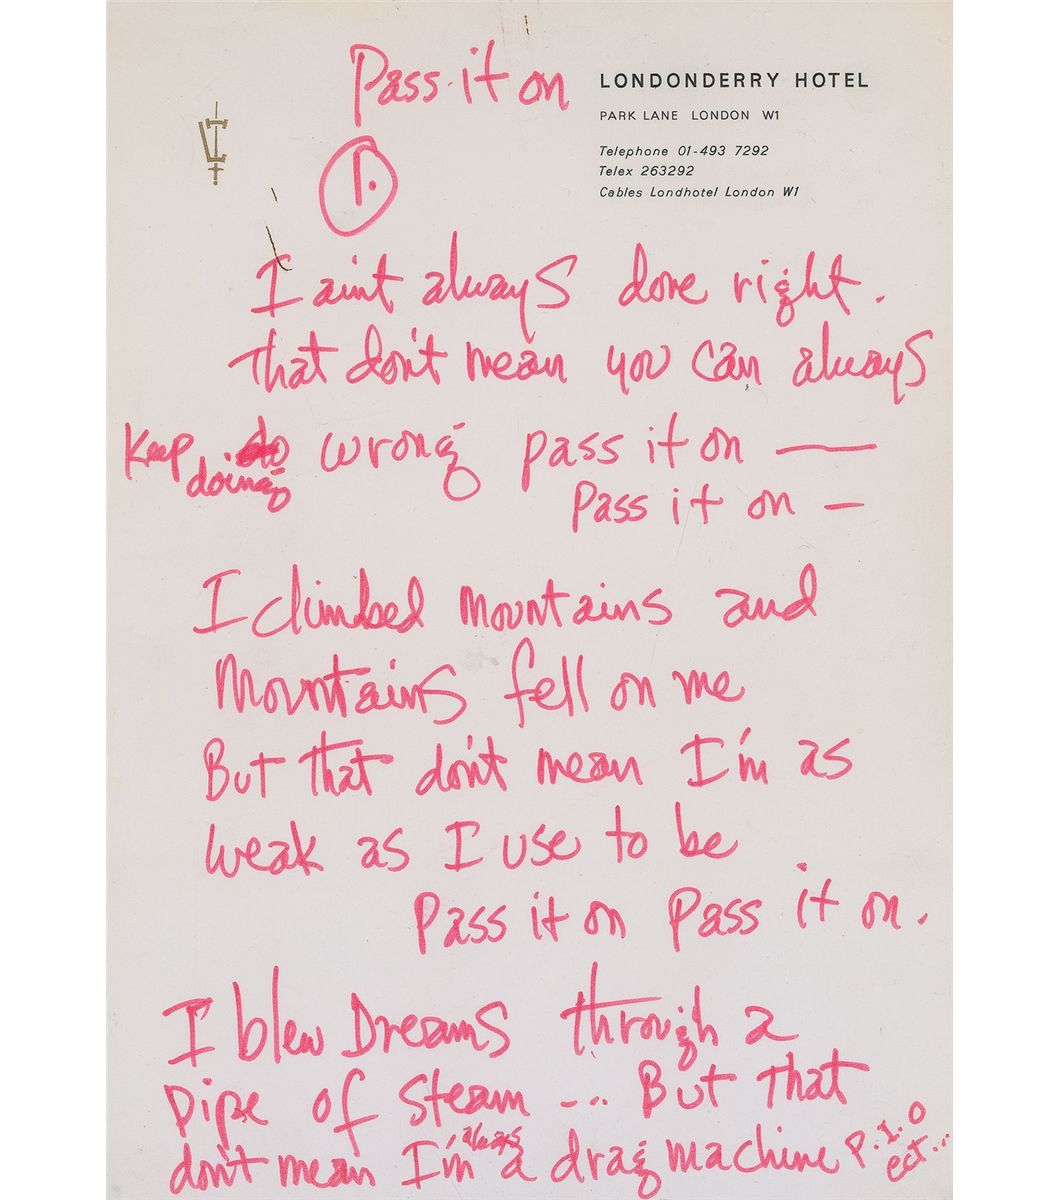 Pass it on
LONDONDERRY HOTEL
PARK LANE LONDON W1
Telephone 01-493 7292
Telex 263292
Cables Londhotel London W1
1.
I aint always done right.
that don't mean you can always
Keep doing do wrong pass it on —
Pass it on —
I climbed mountains and
Mountains fell on me
But that don't mean I'm as
weak as I use to be
Pass it on Pass it on.
I blew Dreams through a
Pipe of Steam --.. But that
don't mean I'm always a drag machine P.I.O
ect...